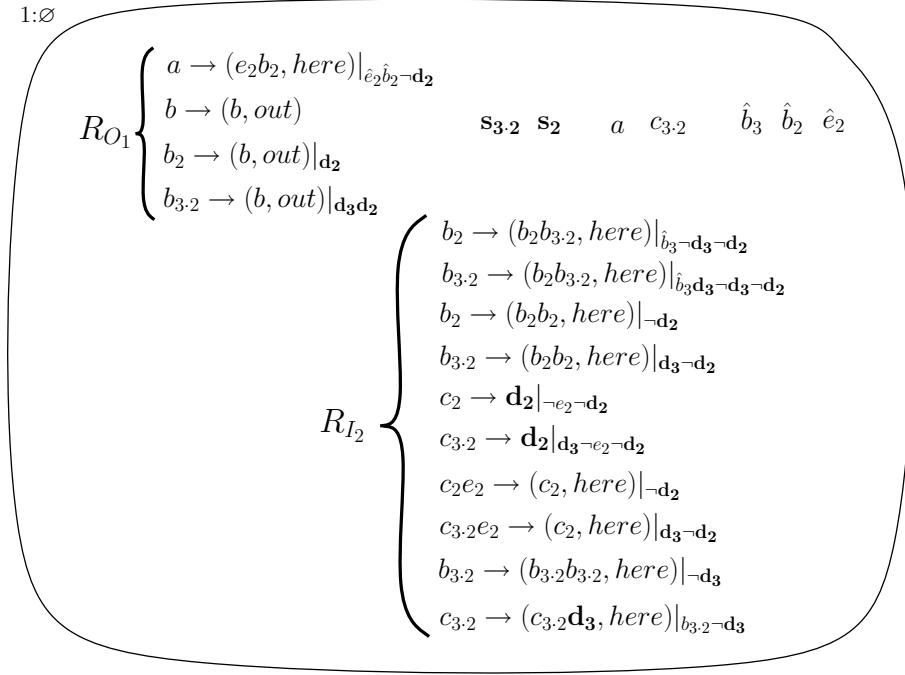 1:∅
R_{O_1}
a → (e_2b_2, here)|_{ê_2b̂_2¬𝐝_𝟐}
b → (b, out)
b_2 → (b, out)|_{𝐝_𝟐}
b_{3·2} → (b, out)|_{𝐝_𝟑𝐝_𝟐}
𝐬_{𝟑·𝟐} 𝐬_𝟐 a c_{3·2} b̂_3 b̂_2 ê_2
R_{I_2}
b_2 → (b_2b_{3·2}, here)|_{b̂_3¬𝐝_𝟑¬𝐝_𝟐}
b_{3·2} → (b_2b_{3·2}, here)|_{b̂_3𝐝_𝟑¬𝐝_𝟑¬𝐝_𝟐}
b_2 → (b_2b_2, here)|_{¬𝐝_𝟐}
b_{3·2} → (b_2b_2, here)|_{𝐝_𝟑¬𝐝_𝟐}
c_2 → 𝐝_𝟐|_{¬e_2¬𝐝_𝟐}
c_{3·2} → 𝐝_𝟐|_{𝐝_𝟑¬e_2¬𝐝_𝟐}
c_2e_2 → (c_2, here)|_{¬𝐝_𝟐}
c_{3·2}e_2 → (c_2, here)|_{𝐝_𝟑¬𝐝_𝟐}
b_{3·2} → (b_{3·2}b_{3·2}, here)|_{¬𝐝_𝟑}
c_{3·2} → (c_{3·2}𝐝_𝟑, here)|_{b_{3·2}¬𝐝_𝟑}